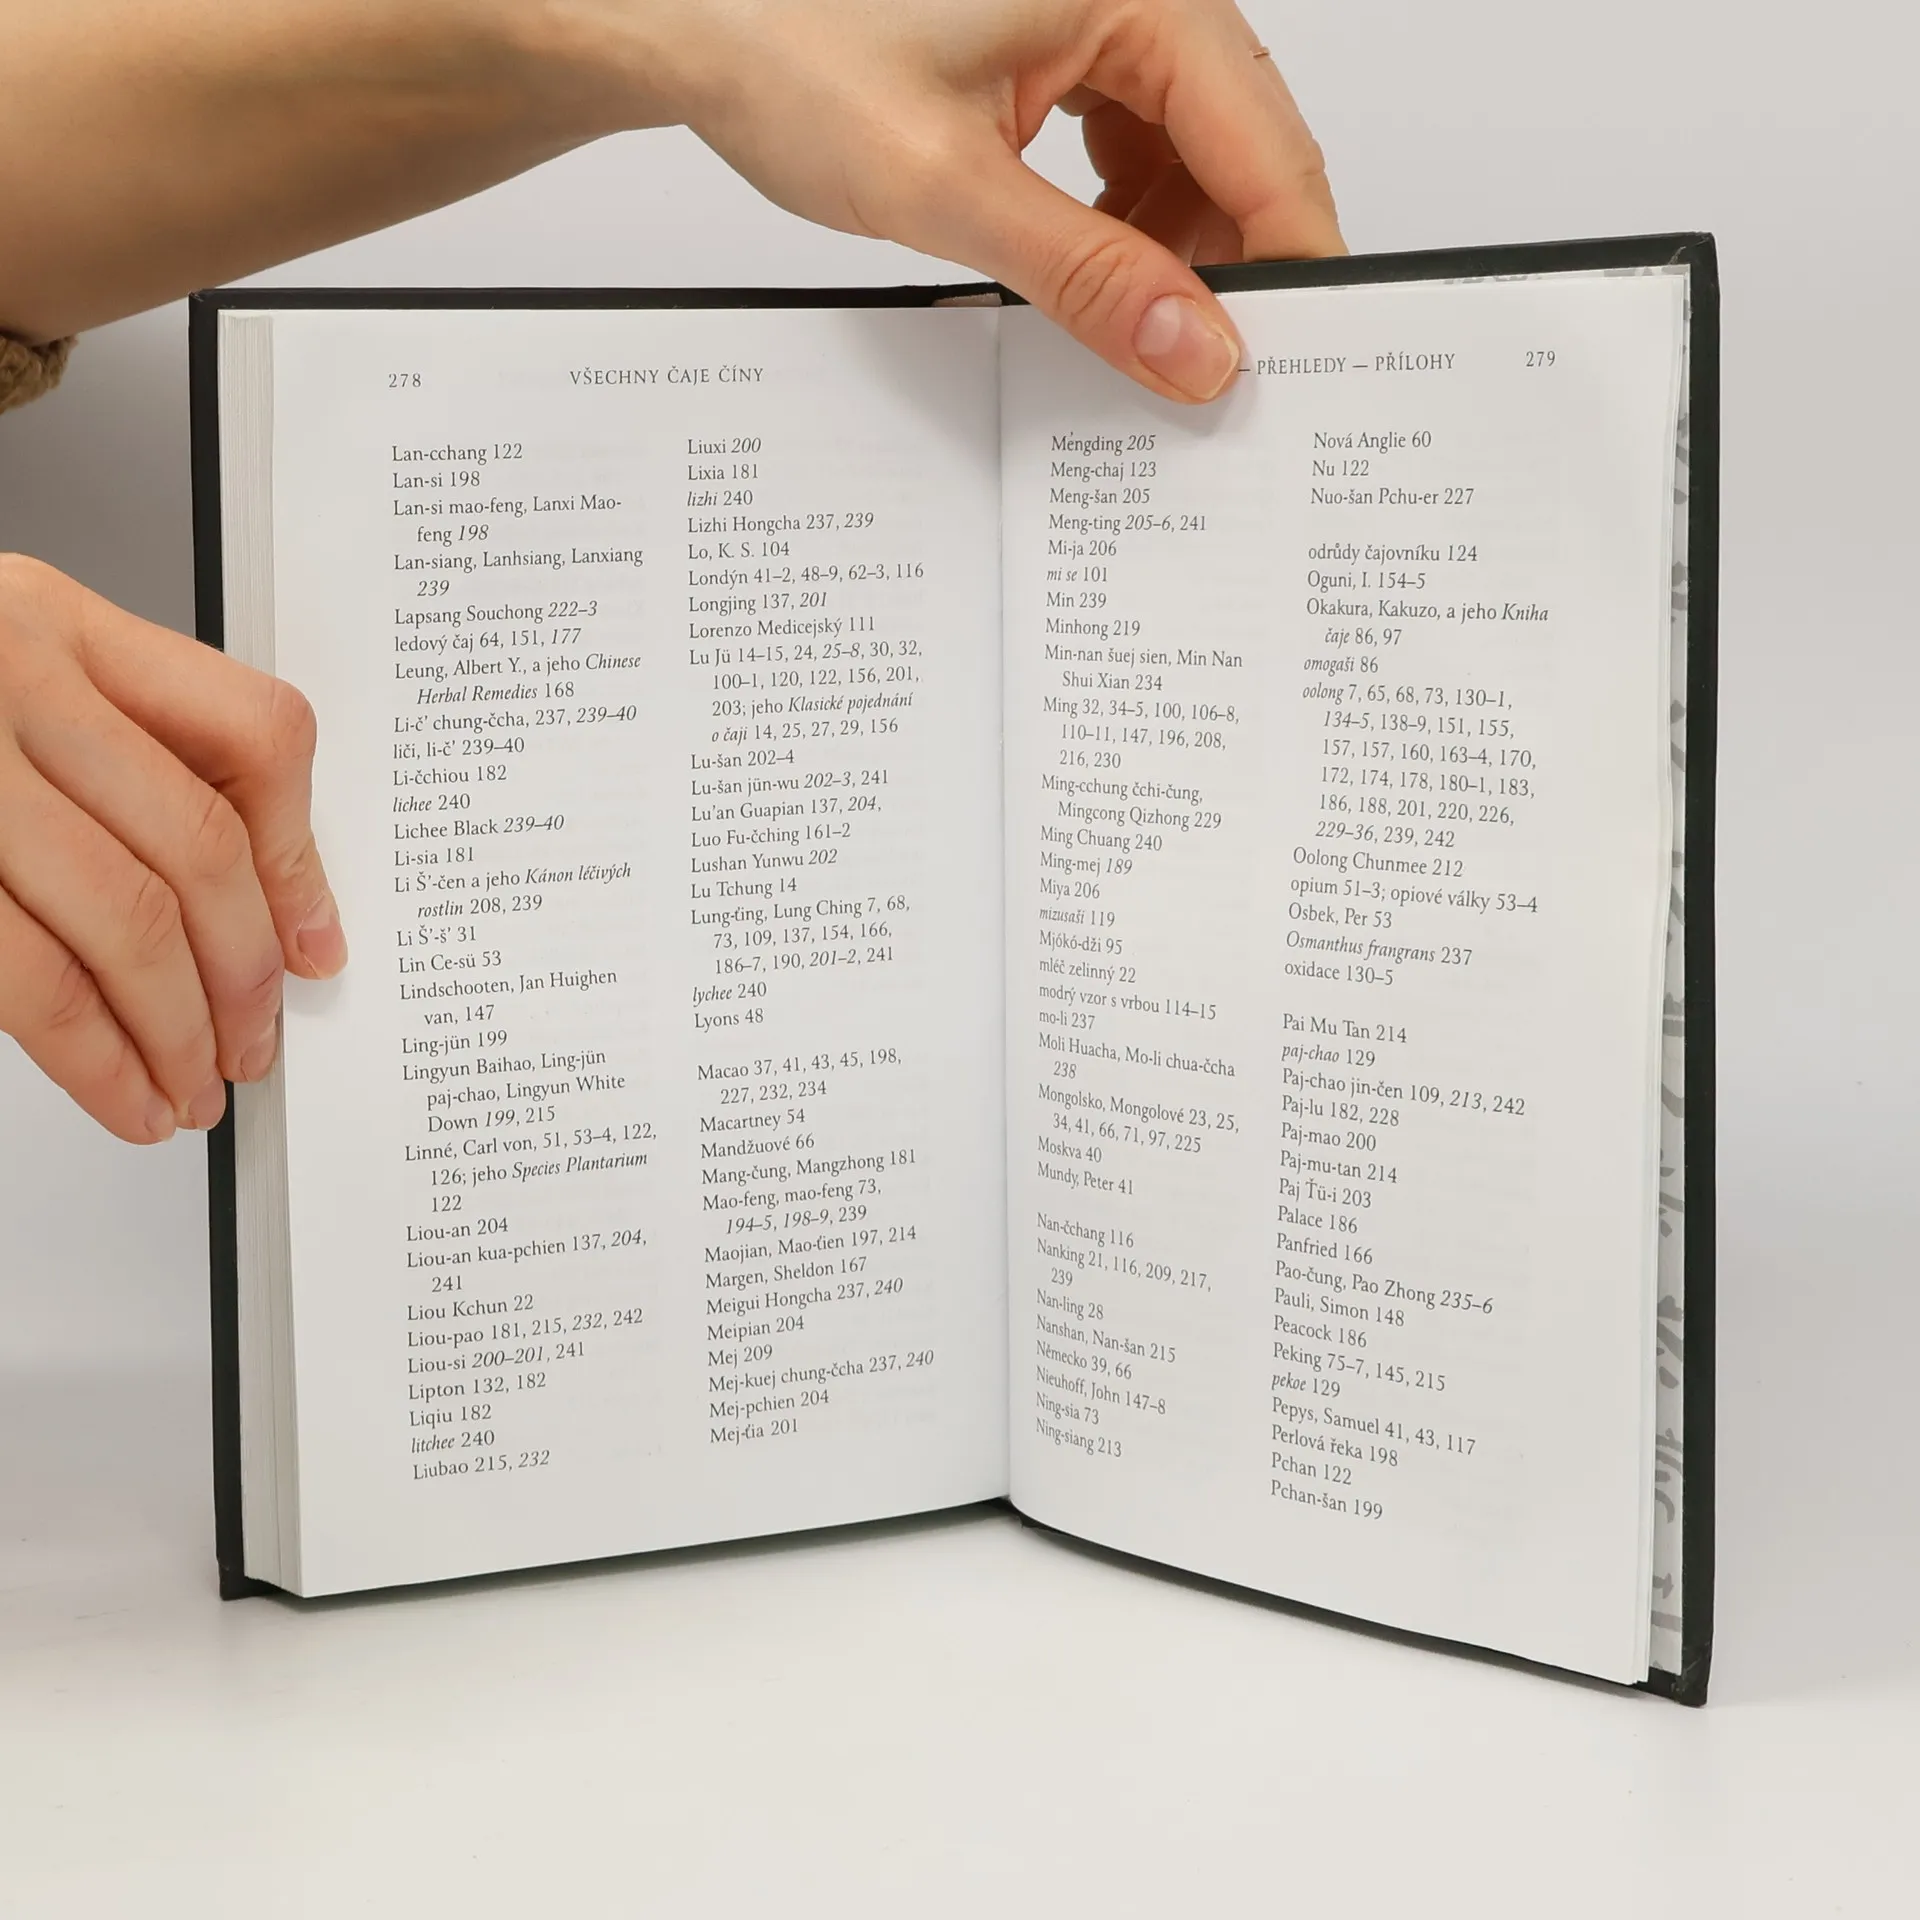 278
VŠECHNY ČAJE ČÍNY
Lan-cchang 122
Lan-si 198
Lan-si mao-feng, Lanxi Mao-
feng 198
Lan-siang, Lanhsiang, Lanxiang
239
Lapsang Souchong 222–3
ledový čaj 64, 151, 177
Leung, Albert Y., a jeho Chinese
Herbal Remedies 168
Li-č’ chung-čcha, 237, 239–40
liči, li-č’ 239–40
Li-čchiou 182
lichee 240
Lichee Black 239–40
Li-sia 181
Li Š’-čen a jeho Kánon léčivých
rostlin 208, 239
Li Š’-š’ 31
Lin Ce-sü 53
Lindschooten, Jan Huighen
van, 147
Ling-jün 199
Lingyun Baihao, Ling-jün
paj-chao, Lingyun White
Down 199, 215
Linné, Carl von, 51, 53–4, 122,
126; jeho Species Plantarium
122
Liou-an 204
Liou-an kua-pchien 137, 204,
241
Liou Kchun 22
Liou-pao 181, 215, 232, 242
Liou-si 200–201, 241
Lipton 132, 182
Liqiu 182
litchee 240
Liubao 215, 232
Liuxi 200
Lixia 181
lizhi 240
Lizhi Hongcha 237, 239
Lo, K. S. 104
Londýn 41–2, 48–9, 62–3, 116
Longjing 137, 201
Lorenzo Medicejský 111
Lu Jü 14–15, 24, 25–8, 30, 32,
100–1, 120, 122, 156, 201,
203; jeho Klasické pojednání
o čaji 14, 25, 27, 29, 156
Lu-šan 202–4
Lu-šan jün-wu 202–3, 241
Lu’an Guapian 137, 204,
Luo Fu-čching 161–2
Lushan Yunwu 202
Lu Tchung 14
Lung-ťing, Lung Ching 7, 68,
73, 109, 137, 154, 166,
186–7, 190, 201–2, 241
lychee 240
Lyons 48
Macao 37, 41, 43, 45, 198,
227, 232, 234
Macartney 54
Mandžuové 66
Mang-čung, Mangzhong 181
Mao-feng, mao-feng 73,
194–5, 198–9, 239
Maojian, Mao-ťien 197, 214
Margen, Sheldon 167
Meigui Hongcha 237, 240
Meipian 204
Mej 209
Mej-kuej chung-čcha 237, 240
Mej-pchien 204
Mej-ťia 201
— PŘEHLEDY — PŘÍLOHY
279
Mengding 205
Meng-chaj 123
Meng-šan 205
Meng-ting 205–6, 241
Mi-ja 206
mi se 101
Min 239
Minhong 219
Min-nan šuej sien, Min Nan
Shui Xian 234
Ming 32, 34–5, 100, 106–8,
110–11, 147, 196, 208,
216, 230
Ming-cchung čchi-čung,
Mingcong Qizhong 229
Ming Chuang 240
Ming-mej 189
Miya 206
mizusaši 119
Mjókó-dži 95
mléč zelinný 22
modrý vzor s vrbou 114–15
mo-li 237
Moli Huacha, Mo-li chua-čcha
238
Mongolsko, Mongolové 23, 25,
34, 41, 66, 71, 97, 225
Moskva 40
Mundy, Peter 41
Nan-čchang 116
Nanking 21, 116, 209, 217,
239
Nan-ling 28
Nanshan, Nan-šan 215
Německo 39, 66
Nieuhoff, John 147–8
Ning-sia 73
Ning-siang 213
Nová Anglie 60
Nu 122
Nuo-šan Pchu-er 227
odrůdy čajovníku 124
Oguni, I. 154–5
Okakura, Kakuzo, a jeho Kniha
čaje 86, 97
omogaši 86
oolong 7, 65, 68, 73, 130–1,
134–5, 138–9, 151, 155,
157, 157, 160, 163–4, 170,
172, 174, 178, 180–1, 183,
186, 188, 201, 220, 226,
229–36, 239, 242
Oolong Chunmee 212
opium 51–3; opiové války 53–4
Osbek, Per 53
Osmanthus frangrans 237
oxidace 130–5
Pai Mu Tan 214
paj-chao 129
Paj-chao jin-čen 109, 213, 242
Paj-lu 182, 228
Paj-mao 200
Paj-mu-tan 214
Paj Ťü-i 203
Palace 186
Panfried 166
Pao-čung, Pao Zhong 235–6
Pauli, Simon 148
Peacock 186
Peking 75–7, 145, 215
pekoe 129
Pepys, Samuel 41, 43, 117
Perlová řeka 198
Pchan 122
Pchan-šan 199